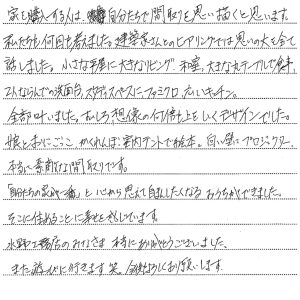 家を購入する人は、自分たちで間取りを思い描くと思います。
私たちも何回も考えました。建築家さんとのヒアリングでは思いの丈を全て
話しました。小さな平屋に大きなリビング、和室、大きな丸テーブルで食事、
2人ならんでの洗面台、スタディスペースにファミクロ、広いキッチン。
全部叶いました。むしろ想像の何倍も上をいくデザインでした。
娘とおにごっこ、かくれんぼ、室内テントで絵本、白い壁にプロジェクター、
本当に素敵な間取りです。
「自分たちの家が一番」と心から思えて自まんしたくなるおうちができました。
そこに住めることに幸せを感じています。
水野工務店のみなさま 本当にありがとうございました。
また遊びに行きます 笑 今後もよろしくお願いします。